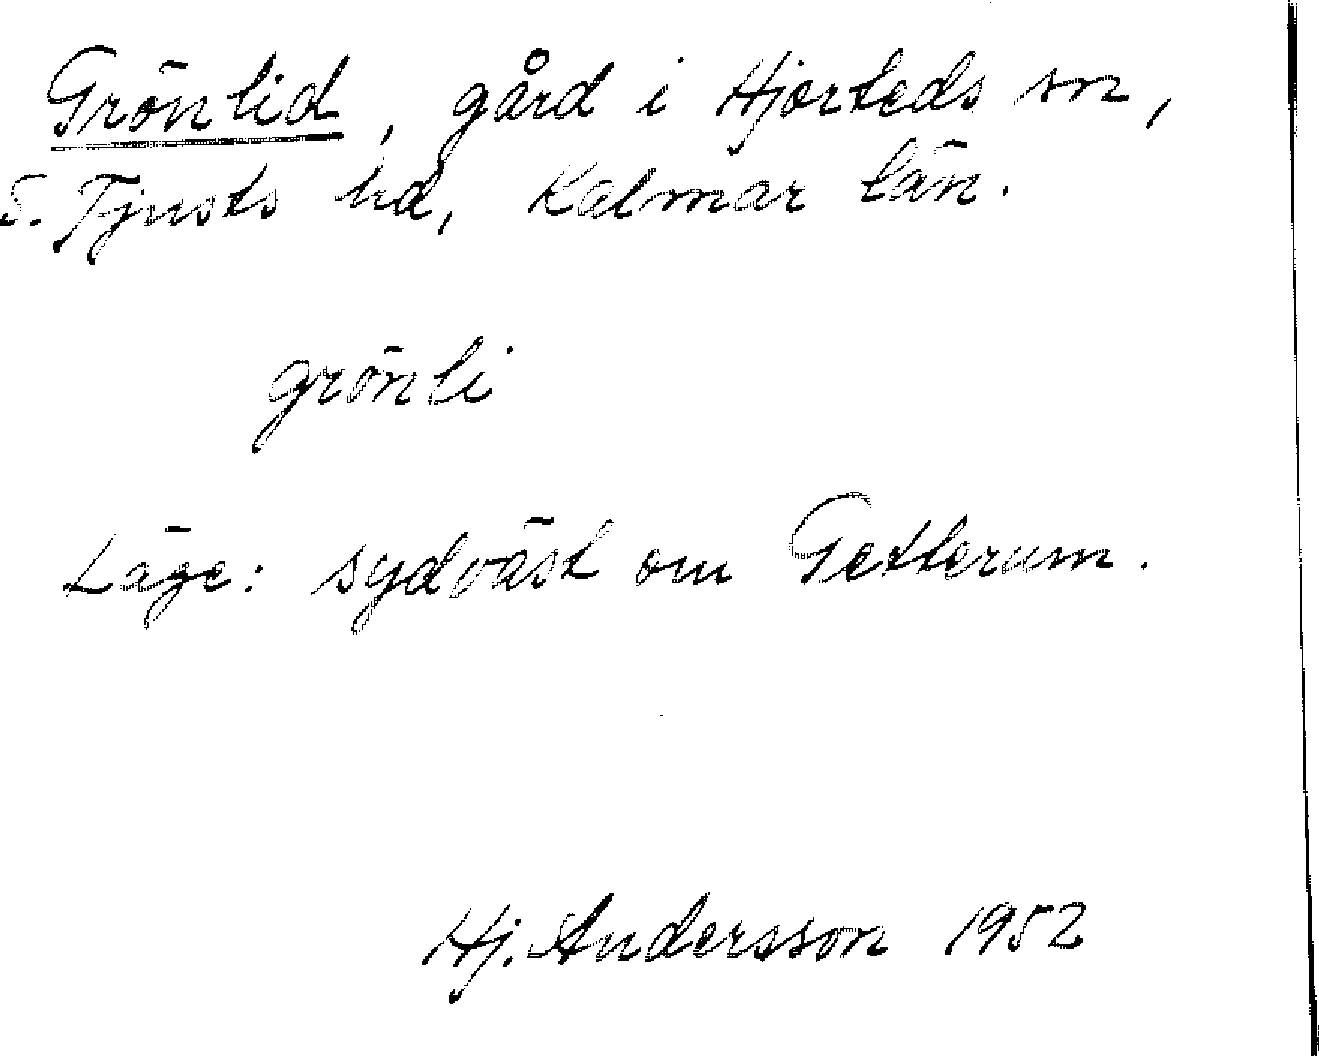 Grönlid, gård i Hjorteds sn,
S. Tjusts hd, Kalmar län.
grönli
Läge: sydväst om Getterum.
Hj. Andersson 1952